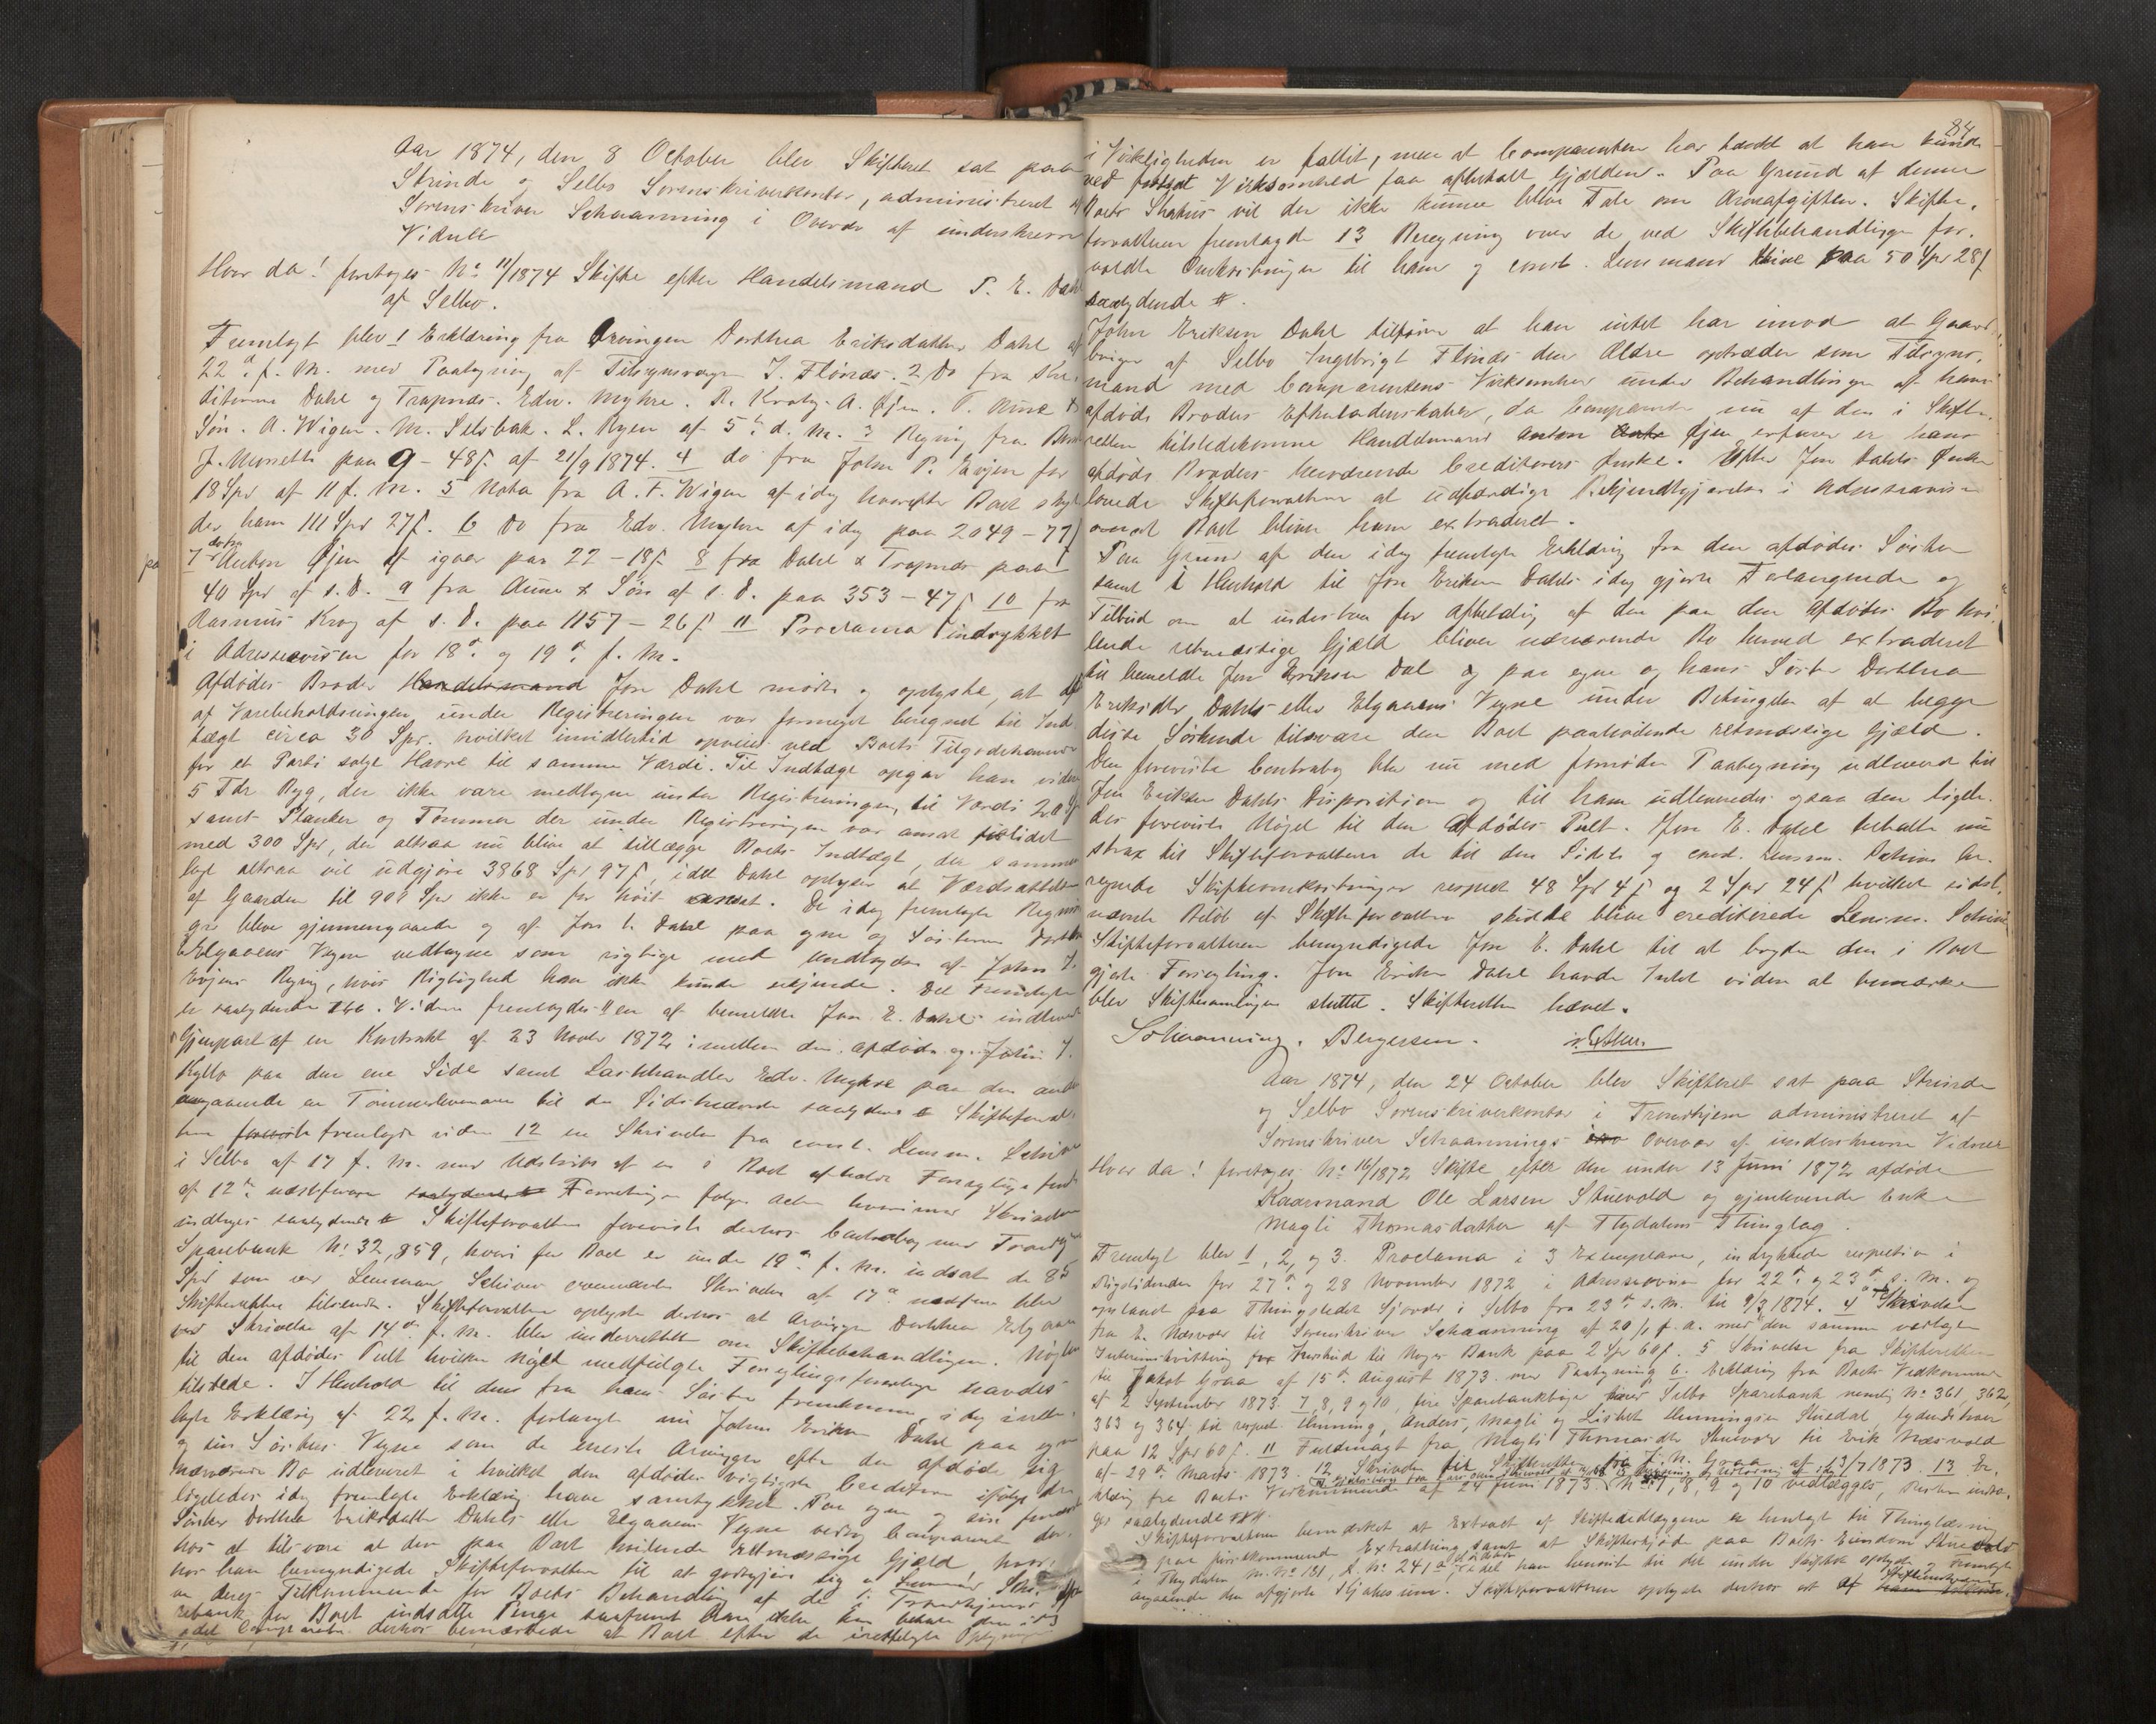 Aar 1874, den 8 October blev Skifteret sat paa
Strinde og Selbo Sorenskriverkontor, administreret af
Sorenskriver Schaanning i Overvær af underskrevne
Vidner
Hvor da! foretoges No 11/1874 Skifte efter Handelsmand P. E. Dahl
af Selbo.
Fremlagt blev 1 Erklæring fra Arvingen Dorthea Eriksdatter Dahl af
22d f. M. med Paategning af Tilsynsværge I. Flønæs. 2 Do fra Kre-
ditorerne Dahl og Trapnæs. Edv. Myhre. R. Krog. A. Øjen. T. Aune &
Søn. A. Wigen. M. Selsbak. L. Ryen af 5te d. M. 3 Regning fra
J. Morseth paa 9 - 48 s. af 21/9 1874. 4 do fra John P. Evjen for
18 Spd af 11 f. M. 5 Nota fra A. F. Wigen af idag hvorefter Boet skyl-
der ham 111 Spd 27 s. 6 Do fra Edv. Myhre af idag paa 2049 - 77 s
7 do fra Anton Øjen af igaar paa 22 - 18 s 8 fra Dahl & Trapnæs paa
40 Spd af s. D. 9 fra Aune & Søn af s. D. paa 353 - 47 s 10 fra
Rasmus Krog af s. D. paa 1157 - 26 s 11 Proclama indrykket
i Adresseavisen for 18de og 19de f. M.
Afdødes Broder Handelsmand Jon Dahl mødte og oplyste, at
af Varebeholdningen under Registreringen var formeget beregnet til Ind-
tægt circa 30 Spd. hvilket imidlertid opveies ved Boets Tilgodehavende
for et Parti solgt Havre til samme Værdi. Til Indtægt opgav han videre
5 Tdr Byg, der ikke vare medtagne under Registreringen, til Værdi 20 Spd
samt Planker og Tømmer der under Registreringen var ansat
med 300 Spd, der altsaa nu bliver at tillægge Boets Indtægt, der sammen-
lagt altsaa vil udgjøre 3868 Spd 97 s, idet Dahl oplyser at Værdsættelsen
af Gaarden til 900 Spd ikke er for høit ansat. De idag fremlagte Regnin-
ger bleve gjennemgaaede og af Jon E. Dahl paa egne og Søsteren Dorthea
Elgaaens Vegne vedtagne som rigtige med Undtagelse af John P.
Evjens Regning, hvis Rigtighed han ikke kunde erkjende. Det Fremlagte
er saalydende. Videre fremlagdes en af bemeldte Jon E. Dahl indleveret
Gjenpart af en Kontrakt af 23 Novbr 1872 imellem den afdøde og John J.
Kyllo paa den ene Side samt Lasthandler Edv. Myhre paa den anden
angaaende en Tømmerleverance til den Sidstnævnte saalydende Skifteforval-
teren fremlagde videre 12 en Skrivelse fra const. Lensm. Schive
i Selbo af 17 f. M. med Udskrift af en i Boet afholdt Forseglingsforretning
af 12te næstforan Forretningen følger Acten hvorimod Skrivelsen
indtages saalydende Skifteforvalteren foreviste derhos Contrabog med Trondhjems
Sparebank No 32,859, hvori for Boet er under 18de f. M. indsat de 85
Spd som ved Lensmand Schives ovennævnte Skrivelse af 17de næstforan blev
Skifteretten tilsendt. Skifteforvalteren oplyste derhos at Arvingen Dorthea Elgaaen
ved Skrivelse af 14de f. M. blev underrettet om Skiftebehandlingen. Nøglen
til den afdødes Pult hvilken Nøgel medfulgte Forseglingsforretningen havdes
tilstede. I Henhold til den fra hans Søster fremkomne, i dag fremlagte
Erklæring af 22 f. M. forlangte nu John Eriksen Dahl paa egne
og sin Søsters Vegne som de eneste Arvinger efter den afdøde sig
nærværende Bo udleveret i hvilket den afdødes vigtigste Creditorer ifølge den
ligeledes idag fremlagte Erklæring have samtykket. Paa egne og sin
Søster Dorthea Eriksdatter Dahls eller Elgaaens Vegne vedtog Comparenten der-
hos at tilsvare al den paa Boet hvilende retmæssige Gjæld hvor-
hos han bemyndigede Skifteforvalteren til at godtgjøre sig
deres Tilkommende for Boets Behandling af de i Trondhjems Spa-
rebank for Boet indsatte Penge saafremt han ikke kan betale
idet Comparenten derhos bemærkede at Boet efter de Oplysninger
84
i Virkeligheden er fallit, men at Comparenten har troet at han kunde
ved fortsat Virksomhed faa afbetalt Gjælden. Paa Grund af denne
Boets Status vil der ikke kunne blive Tale om Arveafgiften. Skifte-
forvalteren fremlagde 13 Beregning over de ved Skiftebehandlingen for-
voldte Omkostninger til ham og const. Lensmand Schive paa 50 Spd 28 s
saalydende.
John Eriksen Dahl tilføiede at han intet har imod at Gaard-
bruger af Selbo Ingebrigt Flønæs den Ældre optræder som Tilsyns-
mand med Comparentens Virksomhed under Behandlingen af hans
afdøde Broders Efterladenskaber, da Comparenten nu af den i Skifte-
retten tilstedekomne Handelsmand Anton Øjen erfarer er hans
afdøde Broders herværende Creditorers Ønske. Efter Jon Dahls Ønske
lovede Skifteforvalteren at udfærdige Bekjendtgjørelse i Adresseavisen
om at Boet bliver ham extraderet.
Paa Grund af den idag fremlagte Erklæring fra den afdødes Søster
samt i Henhold til Jon Eriksen Dahls idag gjorte Forlangende og
Tilbud om at indestaa for Afbetaling af den paa den afdødes Bo hvi-
lende retmæssige Gjæld bliver nærværende Bo hermed extraderet
til bemeldte Jon Eriksen Dal og paa egne og hans Søster Dorthea
Eriksdtr Dahls eller Elgaaens Vegne under Betingelse af at begge
disse Søskende tilsvare den Boet paahvilende retmæssige Gjæld.
Den foreviste Contrabog blev nu med fornøden Paategning udleveret til
Jon Eriksen Dahls Disposition og til ham udleveredes ogsaa den ligele-
des foreviste Nøgel til den Afdødes Pult. Jon E. Dahl betalte nu
strax til Skifteforvalteren de til den Sidste og const. Lensm. Schive be-
regnede Skifteomkostninger respect 48 Spd 4 s og 2 Spd 24 s hvilket sidst-
nævnte Beløb af Skifteforvalteren skulde blive crediterede Lensm. Schive
Skifteforvalteren bemyndigede Jon E. Dahl til at bryde den i Boet
gjorte Forsegling. Jon Eriksen Dahl havde Intet videre at bemærke
blev Skiftesamlingen sluttet. Skifteretten hævet.
Schaanning. Bergersen.
Aar 1874, den 24 October blev Skifteret sat paa Strinde
og Selbo Sorenskriverkontor i Trondhjem administreret af
Sorenskriver Schaannings Overvær af underskrevne Vidner
Hvor da! foretoges No 16/1872 Skifte efter den under 13 Juni 1872 afdøde
Kaarmand Ole Larsen Stuevold og gjenlevende Enke
Magli Thomasdatter af Thydalens Thinglag.
Fremlagt blev 1, 2, og 3. Proclama i 3 Exemplarer, indrykkede respective i
Rigstidenden for 27de og 28 November 1872 i Adresseavisen for 22de og 23de s. M. og
opslaaet paa Thingstedet i Selbo fra 23de s. M. til 9/3 1874. 4 Skrivelse
fra E. Næsvold til Sorenskriver Schaanning af 20/1 f. A. med den samme vedlagte
Interimskvittering for Indskud til Norges Bank paa 2 Spd 60 s. 5 Skrivelse fra Skifteretten
til Jakob Graa af 15de August 1873 med Paategning 6. Erklæring fra Boets Vedkommende
af 2 September 1873. 7, 8, 9 og 10, fire Sparebankbøger med Selbo Sparebank nemlig No 361, 362,
363 og 364 til respect. Henning, Anders, Magli og Lisbet Henningsen Stuedal, lydende hver
paa 12 Spd 60 s. 11 Fuldmagt fra Magli Thomasdtr Stuevold til Erik Næsvold
af 29de Marts 1873. 12 Skrivelse til Skifteretten fra J. N. Graa af 13/7 1873. 13 Er-
klæring fra Boets Vedkommende af 24 Juni 1873. No 7, 8, 9 og 10 vedlægges, Resten indta-
ges saalydende
Skifteforvalteren bemærket at Extract af Skifteudlæggene er henlagt til Thinglæsning
paa forekommende Extrarthing samt at Skifteskjøde paa Boets Eiendom Stuevold
i Thydalen M. No 181, L. No 241 a, idet han henviste til det under Skiftet oplyste og fremlagte
angaaende den afgjorte Skjøtesum. Skifteforvalteren oplyste derhos at